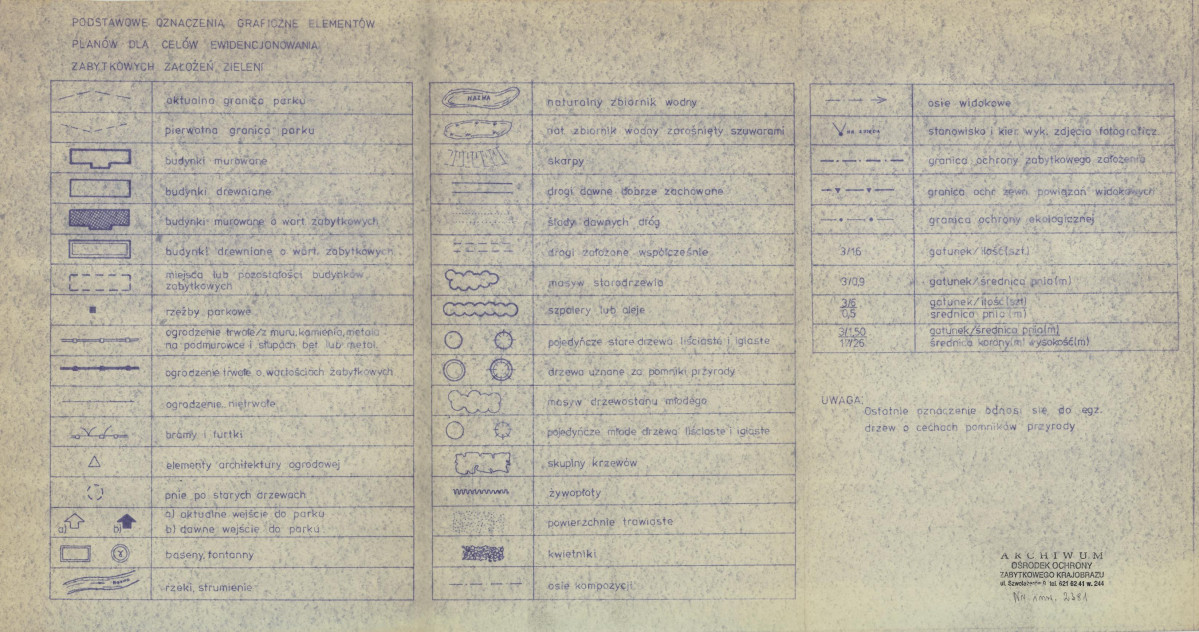 PODSTAWOWE OZNACZENIA GRAFICZNE ELEMENTÓW
PLANÓW DLA CELÓW EWIDENCJONOWANIA
ZABYTKOWYCH ZAŁOŻEŃ ZIELENI
aktualna granica parku
pierwotna granica parku
budynki murowane
budynki drewniane
budynki murowane o wart. zabytkowych
budynki drewniane o wart. zabytkowych
miejsca lub pozostałości budynków
zabytkowych
rzeźby parkowe
ogrodzenie trwałe/z muru, kamienia, metalu
na podmurówce i słupach bet. lub metal.
ogrodzenie trwałe o wartościach zabytkowych
ogrodzenie nietrwałe
bramy i furtki
elementy architektury ogrodowej
pnie po starych drzewach
a) b) a) aktualne wejście do parku
b) dawne wejście do parku
baseny, fontanny
rzeki, strumienie
NAZWA naturalny zbiornik wodny
nat. zbiornik wodny zarośnięty szuwarami
skarpy
drogi dawne dobrze zachowane
ślady dawnych dróg
drogi założone współcześnie
masyw starodrzewia
szpalery lub aleje
pojedyńcze stare drzewa liściaste i iglaste
drzewa uznane za pomniki przyrody
masyw drzewostanu młodego
pojedyńcze młode drzewa liściaste i iglaste
skupiny krzewów
żywopłoty
powierzchnie trawiaste
kwietniki
osie kompozycji
osie widokowe
stanowisko i kier. wyk. zdjęcia fotograficz.
granica ochrony zabytkowego założenia
granica ochr. zewn. powiązań widokowych
granica ochrony ekologicznej
3/16 gatunek/ilość(szt.)
3/0,9 gatunek/średnica pnia(m)
3/6 gatunek/ilość(szt)
0,5 średnica pnia(m)
3/1,50 gatunek/średnica pnia(m)
12/26 średnica korony(m) wysokość(m)
UWAGA:
Ostatnie oznaczenie odnosi się do egz.
drzew o cechach pomników przyrody
ARCHIWUM
OŚRODEK OCHRONY
ZABYTKOWEGO KRAJOBRAZU
tel. 621 62 41 w. 244
2381